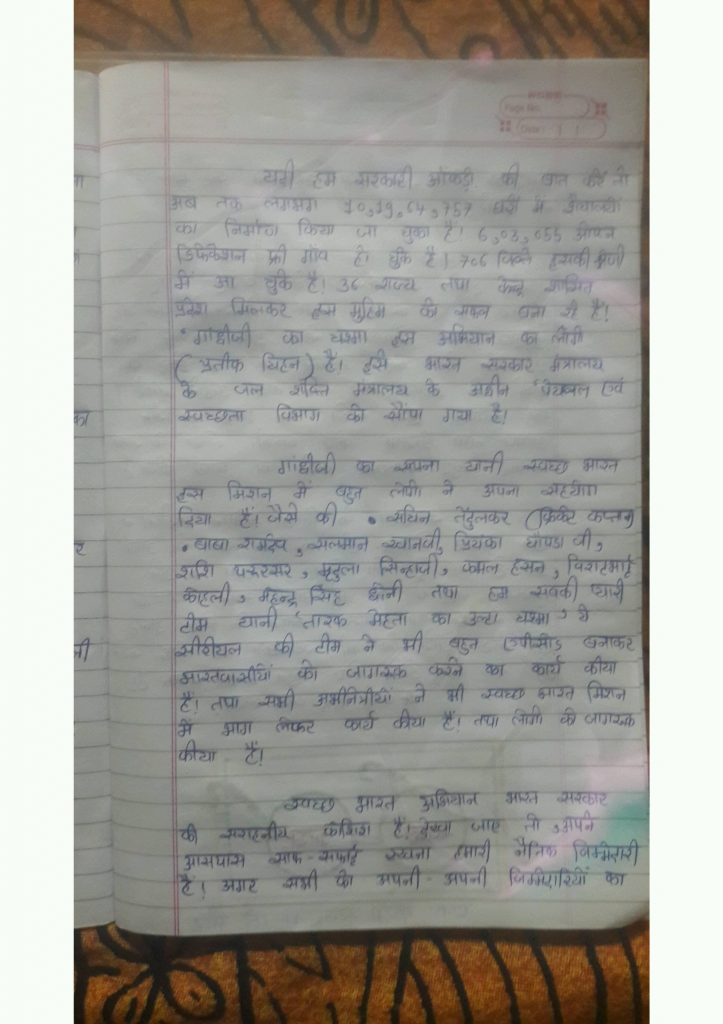 Page No.
Date
यदी हम सरकारी आँकड़ो की बात करें तो
अब तक लगभग 10,19,64,757 घरों में शौचालयों
का निर्माण किया जा चुका है। 6,03,055 ओपन
डिफिकेशन फ्री गाँव हो चुके है। 706 जिल्ले इसकी श्रेणी
में आ चुके है। 36 राज्य तथा केन्द्र शासित
प्रदेश मिलकर इस मुहिम को सफल बना रहे है।
"गांधीजी का चश्मा इस अभियान का लोगो
(प्रतीक चिह्न) है। इसे भारत सरकार मंत्रालय
के जल शक्ति मंत्रालय के अधीन 'पेयजल एवं
स्वच्छता विभाग को सौंपा गया है।
गांधीजी का सपना यानी स्वच्छ भारत
इस मिशन में बहुत लोगो ने अपना सहयोग
दिया हैं। जैसे की • सचिन तेंदुलकर (क्रिकेट कप्तान)
• बाबा रामदेव, सलमान खानजी, प्रियंका चोपडा जी,
शशि थरुरसर, मृदुला सिन्हाजी, कमल हसन, विराटभाई
कोहली, महेन्द्र सिंह धोनी तथा हम सबकी प्यारी
टीम यानी 'तारक मेहता का उल्टा चश्मा' ये
सीरीयल की टीम ने भी बहुत एपीसोड बनाकर
भारतवासीयों को जागरुक करने का कार्य कीया
हैं। तथा सभी अभीनेत्रीयों ने भी स्वच्छ भारत मिशन
में भाग लेकर कार्य कीया है। तथा लोगो को जागरुक
कीया हैं।
स्वच्छ भारत अभियान भारत सरकार
की सराहनीय कोशिश हैं। देखा जाए तो, अपने
आसपास साफ-सफाई रखना हमारी नैतिक जिम्मेदारी
हैं। अगर सभी को अपनी-अपनी जिम्मेदारियों का